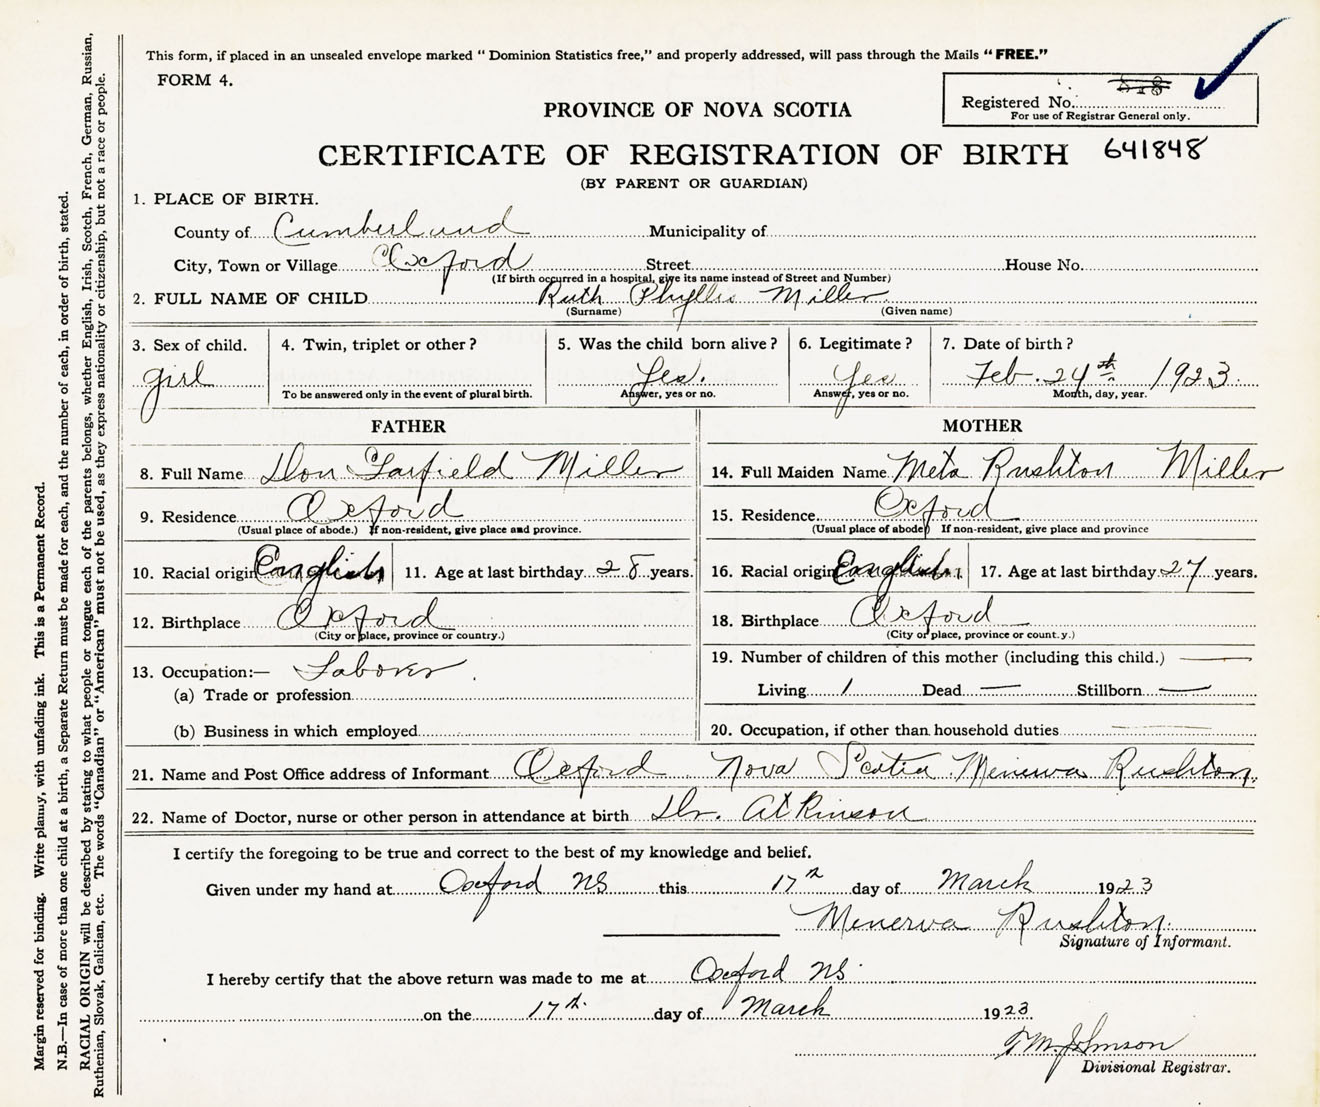 This form, if placed in an unsealed envelope marked “ Dominion Statistics free,” and properly addressed, will pass through the Mails “ FREE.”
FORM 4.
PROVINCE OF NOVA SCOTIA
Registered No.
For use of Registrar General only.
CERTIFICATE OF REGISTRATION OF BIRTH 641848
(BY PARENT OR GUARDIAN)
1. PLACE OF BIRTH.
County of Cumberland Municipality of
City, Town or Village Oxford Street House No.
(If birth occurred in a hospital, give its name instead of Street and Number)
2. FULL NAME OF CHILD Ruth Phyllis Miller
(Surname) (Given name)
3. Sex of child. 4. Twin, triplet or other ? 5. Was the child born alive ? 6. Legitimate ? 7. Date of birth ?
girl Yes. Yes Feb. 24th 1923.
To be answered only in the event of plural birth. Answer, yes or no. Answer, yes or no. Month, day, year.
FATHER MOTHER
8. Full Name Don Garfield Miller 14. Full Maiden Name Meta Rushton Miller
9. Residence Oxford 15. Residence Oxford
(Usual place of abode.) If non-resident, give place and province. (Usual place of abode) If non-resident, give place and province
10. Racial origin English 11. Age at last birthday 28 years. 16. Racial origin English 17. Age at last birthday 27 years.
12. Birthplace Oxford 18. Birthplace Oxford
(City or place, province or country.) (City or place, province or count.y.)
13. Occupation:— Laborer. 19. Number of children of this mother (including this child.) —
(a) Trade or profession Living 1 Dead — Stillborn —
(b) Business in which employed 20. Occupation, if other than household duties —
21. Name and Post Office address of Informant Oxford Nova Scotia Minerva Rushton.
22. Name of Doctor, nurse or other person in attendance at birth Dr. Atkinson
I certify the foregoing to be true and correct to the best of my knowledge and belief.
Given under my hand at Oxford NS this 17th day of March 1923
Minerva Rushton.
Signature of Informant.
I hereby certify that the above return was made to me at Oxford NS.
on the 17th. day of March 1923
Johnson
Divisional Registrar.
Margin reserved for binding. Write plainly, with unfading ink. This is a Permanent Record.
N.B.—In case of more than one child at a birth, a Separate Return must be made for each, and the number of each, in order of birth, stated.
RACIAL ORIGIN will be described by stating to what people or tongue each of the parents belongs, whether English, Irish, Scotch, French, German, Russian,
Ruthenian, Slovak, Galician, etc. The words “Canadian” or “American” must not be used, as they express nationality or citizenship, but not a race or people.